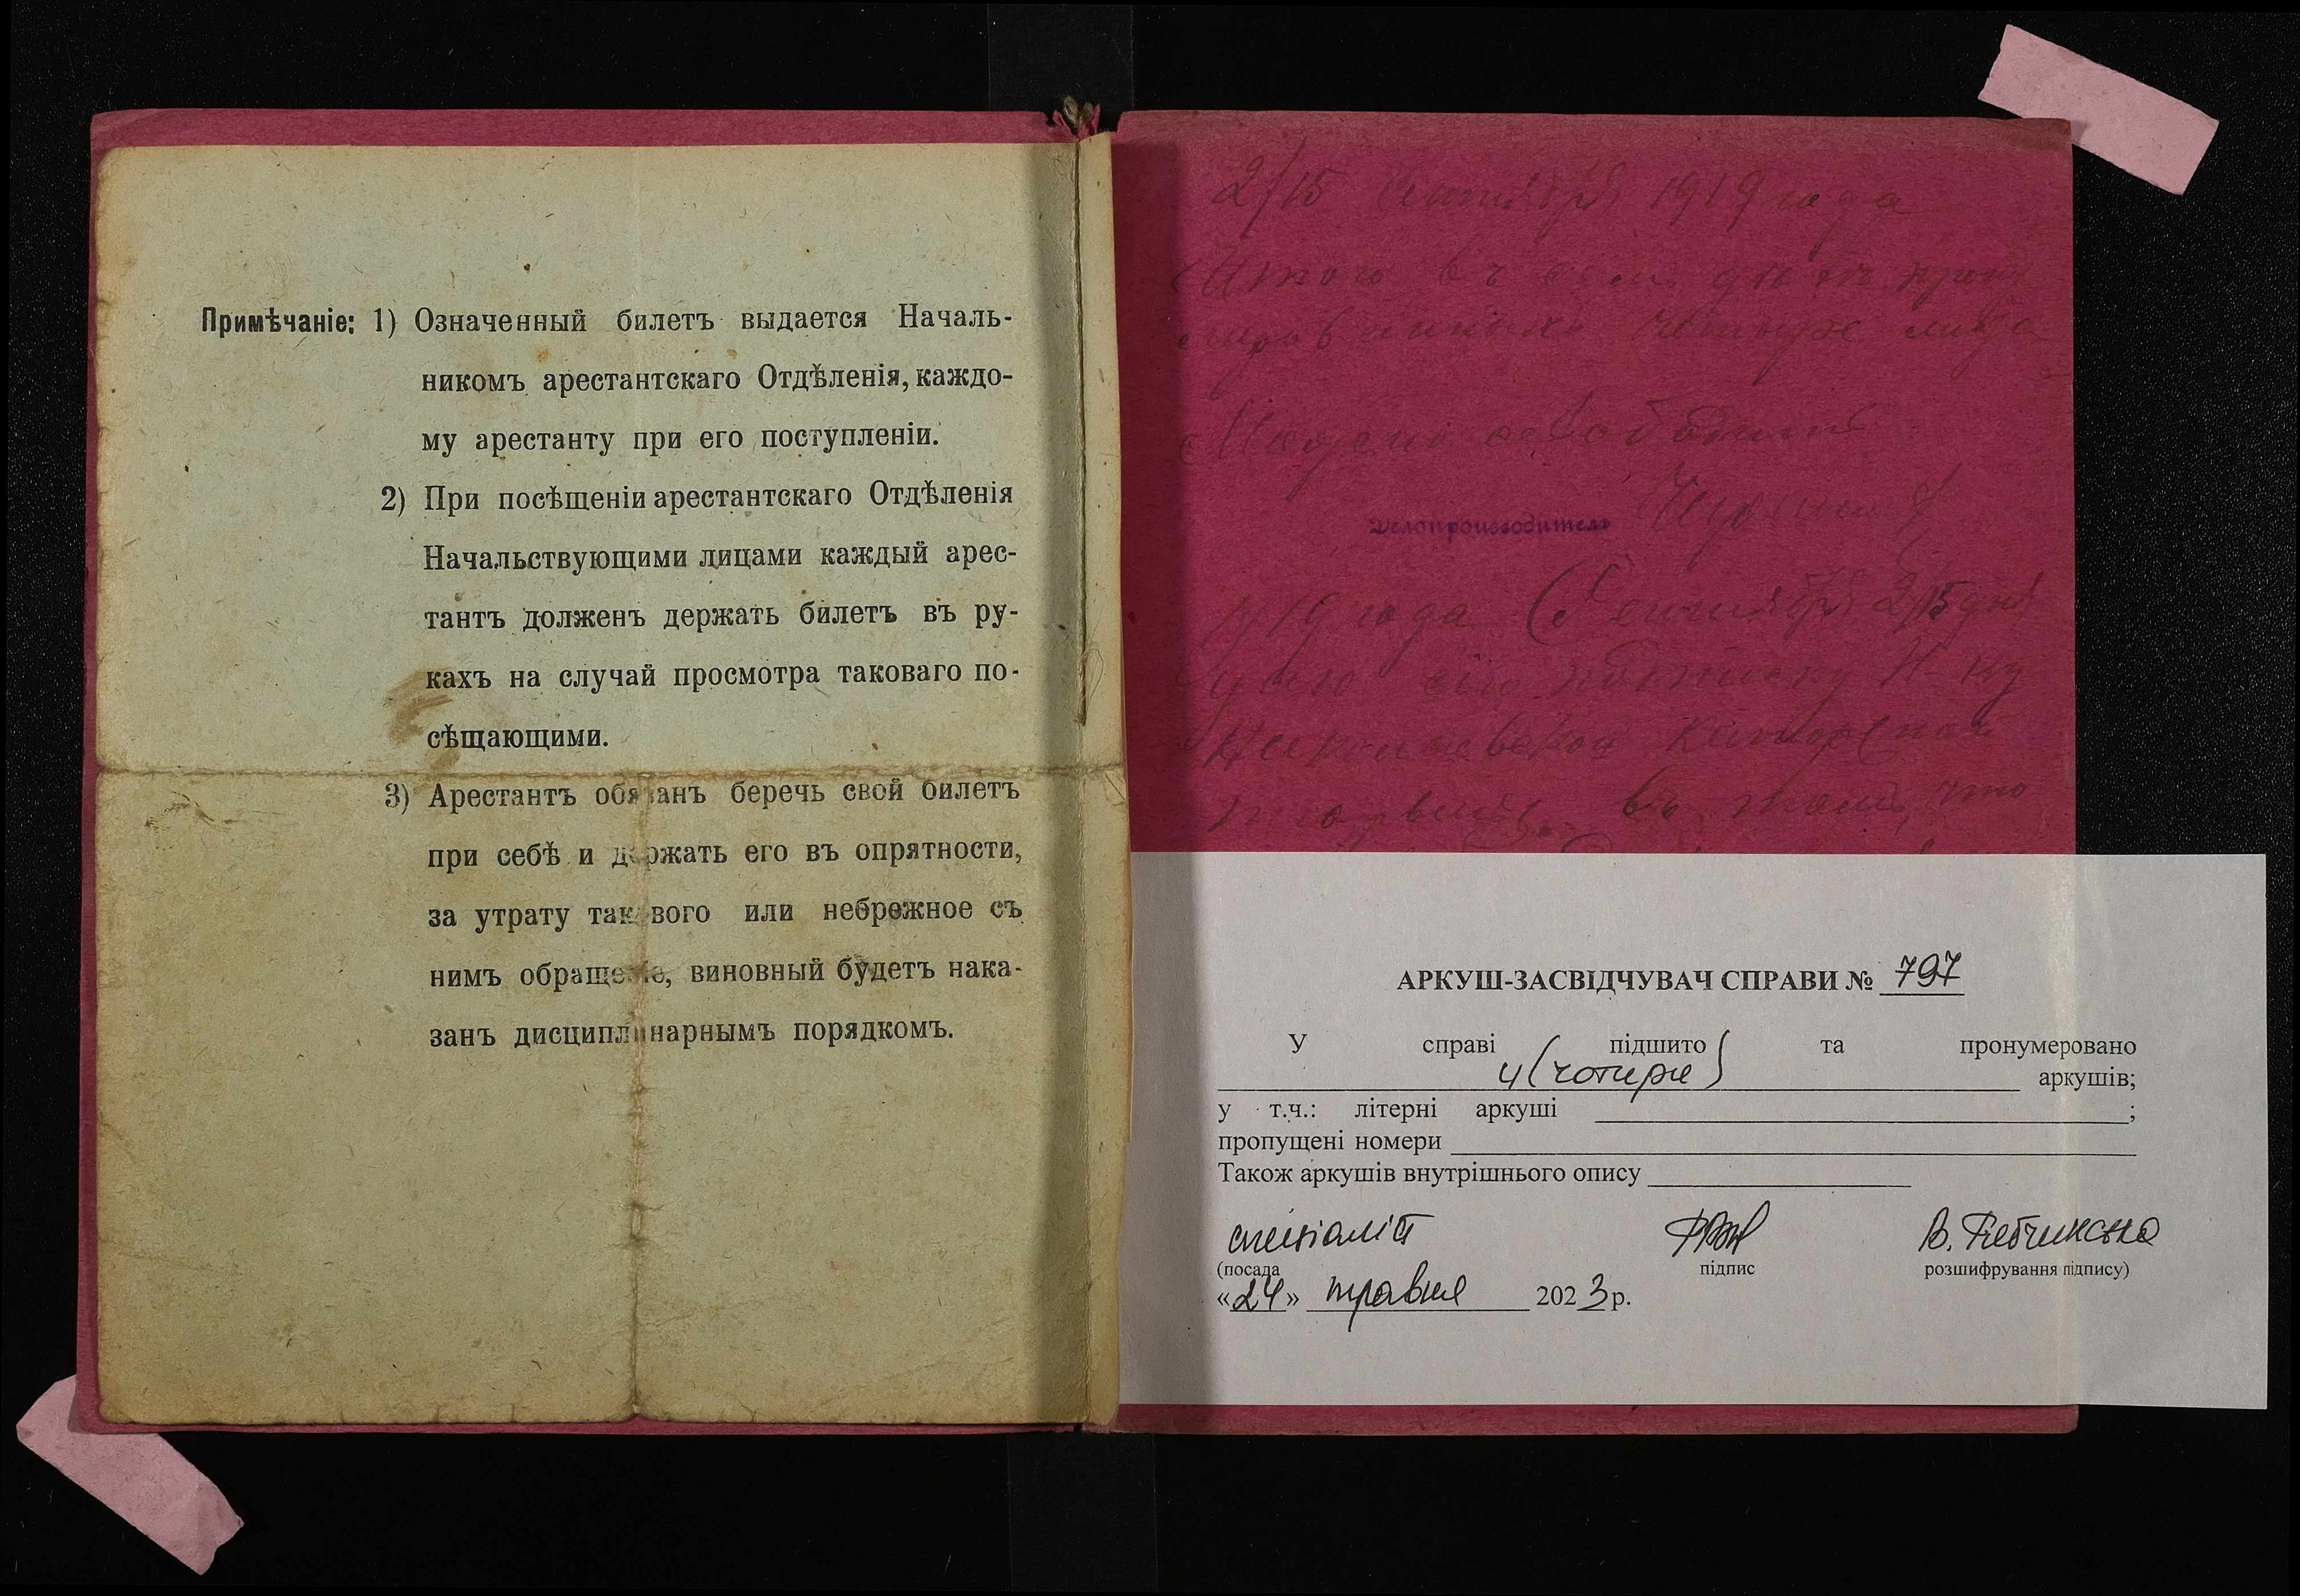 Примѣчаніе: 1) Означенный билетъ выдается Началь-
никомъ арестантскаго Отдѣленія, каждо-
му арестанту при его поступленіи.
2) При посѣщеніи арестантскаго Отдѣленія
Начальствующими лицами каждый арес-
тантъ долженъ держать билетъ въ ру-
кахъ на случай просмотра таковаго по-
сѣщающими.
3) Арестантъ обязанъ беречь свой билетъ
при себѣ и держать его въ опрятности,
за утрату такового или небрежное съ
нимъ обращеніе, виновный будетъ нака-
занъ дисциплинарнымъ порядкомъ.
2/15 Сентября 1919 года
Итого въ семъ
четыре
Делопроизводитель
19 года Сентября 2/15 дня
даю сію подписку
Николаевской Каторжной
въ томъ, что
АРКУШ-ЗАСВІДЧУВАЧ СПРАВИ № 797
У справі підшито та пронумеровано
4 (чотири) аркушів;
у т.ч.: літерні аркуші ;
пропущені номери
Також аркушів внутрішнього опису
спеціаліст
(посада підпис розшифрування підпису)
«24» травня 2023 р.